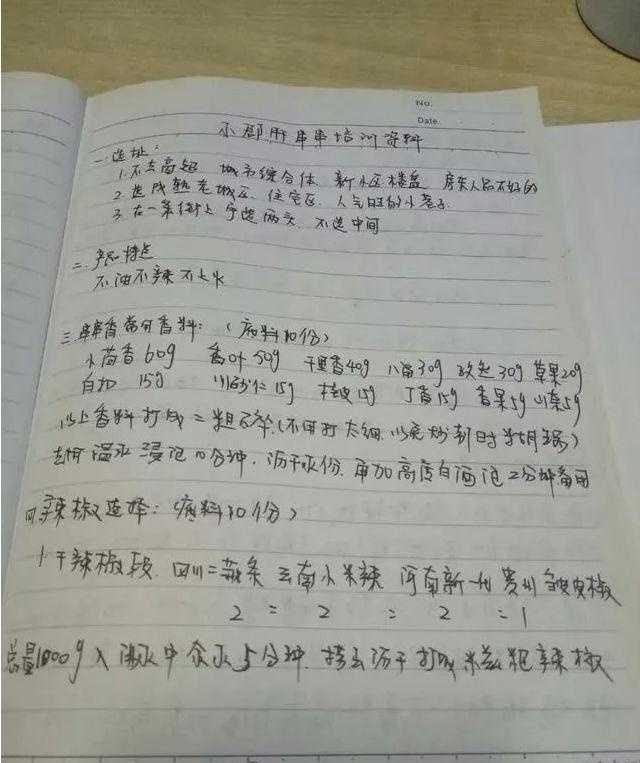 No.
Date.
小郡肝串串培训资料
一.选址:
1.不去高超 城市综合体 新小区楼盘 房东人品不好的
2.选成熟老城区 住宅区 人气旺的小巷子
3.在一条街上 宁选两头 不选中间
二.产品特点
不油不辣不上火
三.串串香需何香料:(底料10份)
小茴香60g 香叶50g 千里香40g 八角30g 30g 草果20g
白扣 15g 砂仁15g 桂皮15g 丁香15g 香果5g 5g
以上香料打成二粗碎(不用打太细,以免炒制时)
去何温水浸泡10分钟.沥干水份.再加高度白酒泡2分钟备用
四辣椒选择:(底料10份)
1干辣椒段.四川二荆条 云南小米辣 河南新一代 贵州皱皮椒
2 : 2 : 2 : 1
总量1000g入沸水中汆水5分钟.捞出沥干打成粑辣椒